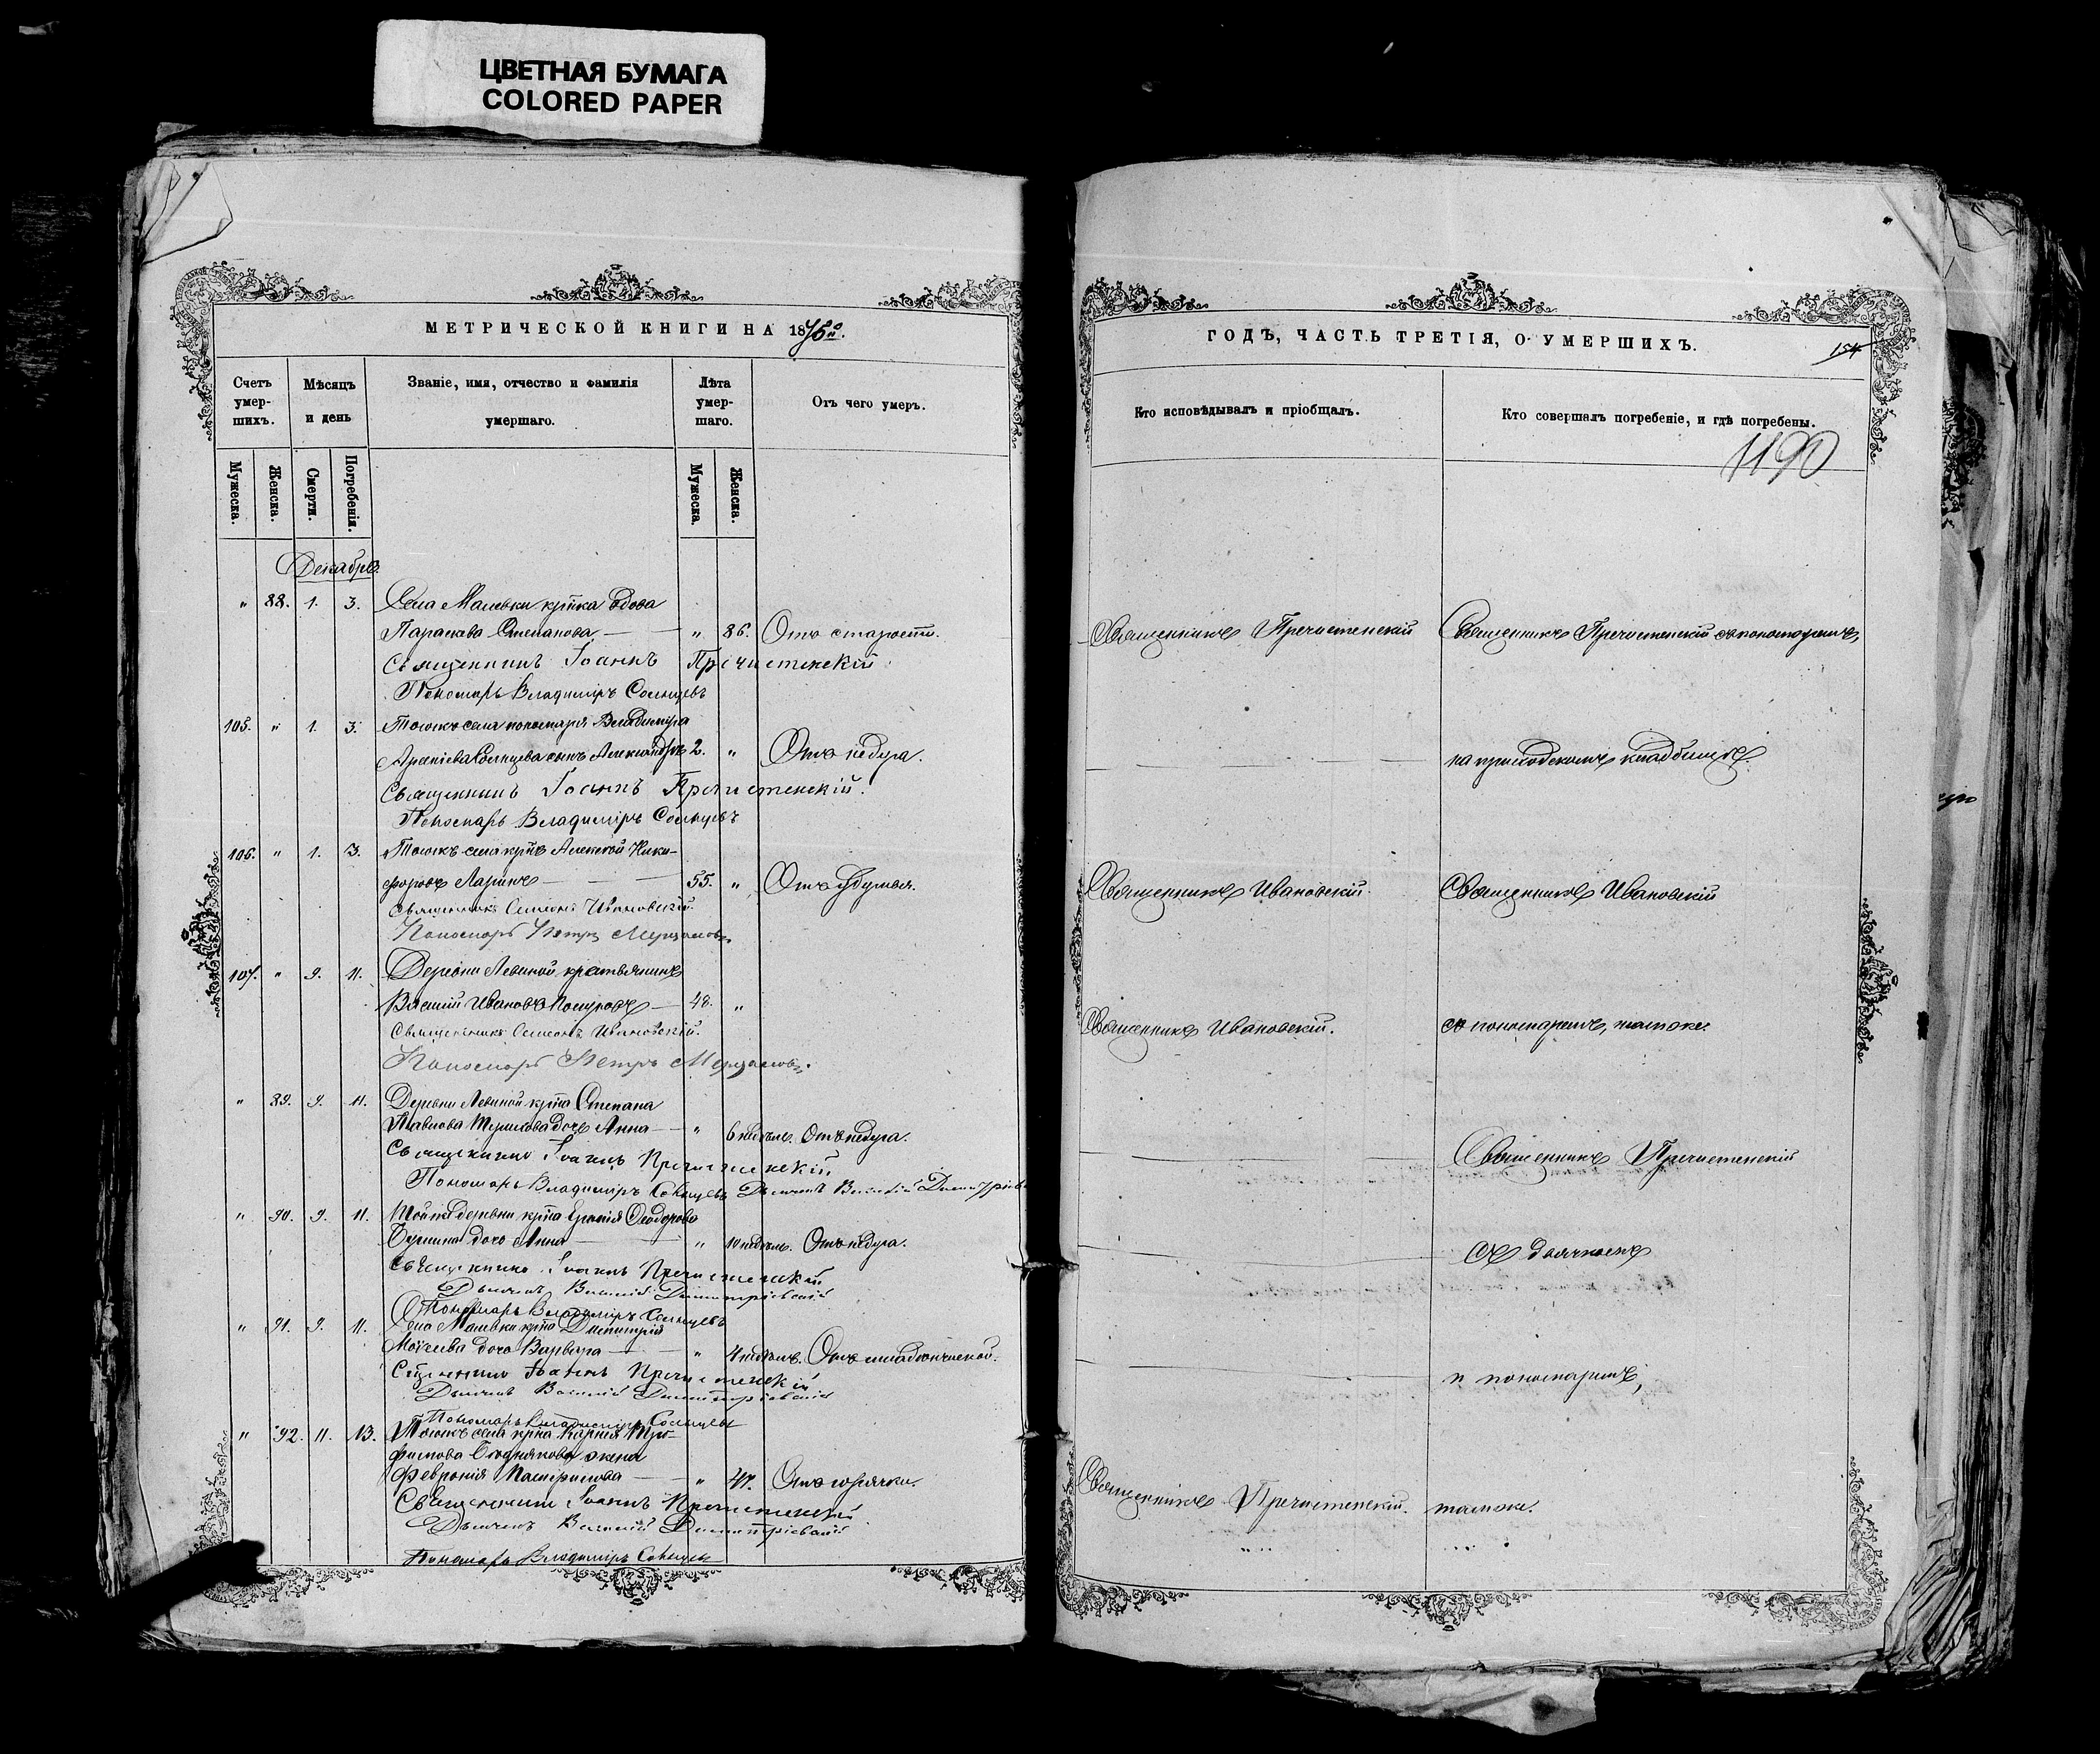 ЦВЕТНАЯ БУМАГА
COLORED PAPER
МЕТРИЧЕСКОЙ КНИГИ НА 1876й.
Счетъ умер-шихъ.
Мѣсяцъ и день
Званіе, имя, отчество и фамилія умершаго.
Лѣта умер-шаго.
Отъ чего умеръ.
Мужеска.
Женска.
Смерти.
Погребенія.
Мужеска.
Женска.
Декабрь.
" 88. 1. 3. Села Малевки крт̃ка вдова
Параскева Степанова " 86. Отъ старости.
Священникъ Іоаннъ Пречистенскій
Пономарь Владиміръ Солнцевъ
105. " 1. 3. Тогожъ села пономаря Владиміра
Солнцева сынъ Александръ 2. " Отъ недуга.
Священникъ Іоаннъ Пречистенскій.
Пономарь Владиміръ Солнцевъ
106. " 1. 3. Тогожъ села крт̃нъ Алексѣй Ники-
форовъ Ларинъ 55. "
Священникъ Симеонъ Ивановскій.
Пономарь Петръ
107. " 9. 11. Деревни Левиной крестьянинъ
Василій Ивановъ 48. "
Священникъ Симеонъ Ивановскій.
Пономарь Петръ
" 89. 9. 11. Деревни Левиной крт̃на Степана
Павлова дочь Анна " 6 недѣль. Отъ недуга.
Священникъ Іоаннъ Пречистенскій
Пономарь Владиміръ Солнцевъ Дьячекъ Василій
" 90. 9. 11. Той же деревни крт̃на Ѳеодорова
дочь Анна " 10 недѣль. Отъ недуга.
Священникъ Іоаннъ Пречистенскій
Дьячекъ Василій Димитріевскій
Пономарь Владиміръ Солнцевъ
" 91. 9. 11. Села Малевки крт̃на Димитрія
Моѵсеева дочь Варвара " 4 недѣль. Отъ младенческой.
Священникъ Іоаннъ Пречистенскій
Дьячекъ Василій Димитріевскій
Пономарь Владиміръ Солнцевъ
" 92. 11. 13. Тогожъ села крт̃на Карпа Тро-
фимова жена
Февронія " 47. Отъ горячки.
Священникъ Іоаннъ Пречистенскій
Дьячекъ Василій Димитріевскій
Пономарь Владиміръ Солнцевъ
ГОДЪ, ЧАСТЬ ТРЕТІЯ, О УМЕРШИХЪ.
154
Кто исповѣдывалъ и пріобщалъ.
Кто совершалъ погребеніе, и гдѣ погребены.
1190
Священникъ Пречистенскій Священникъ Пречистенскій съ пономаремъ,
на приходскомъ кладбищѣ.
Священникъ Ивановскій. Священникъ Ивановскій
Священникъ Ивановскій. съ пономаремъ, тамже.
Священникъ Пречистенскій
съ дьячкомъ
и пономаремъ,
Священникъ Пречистенскій. тамже.